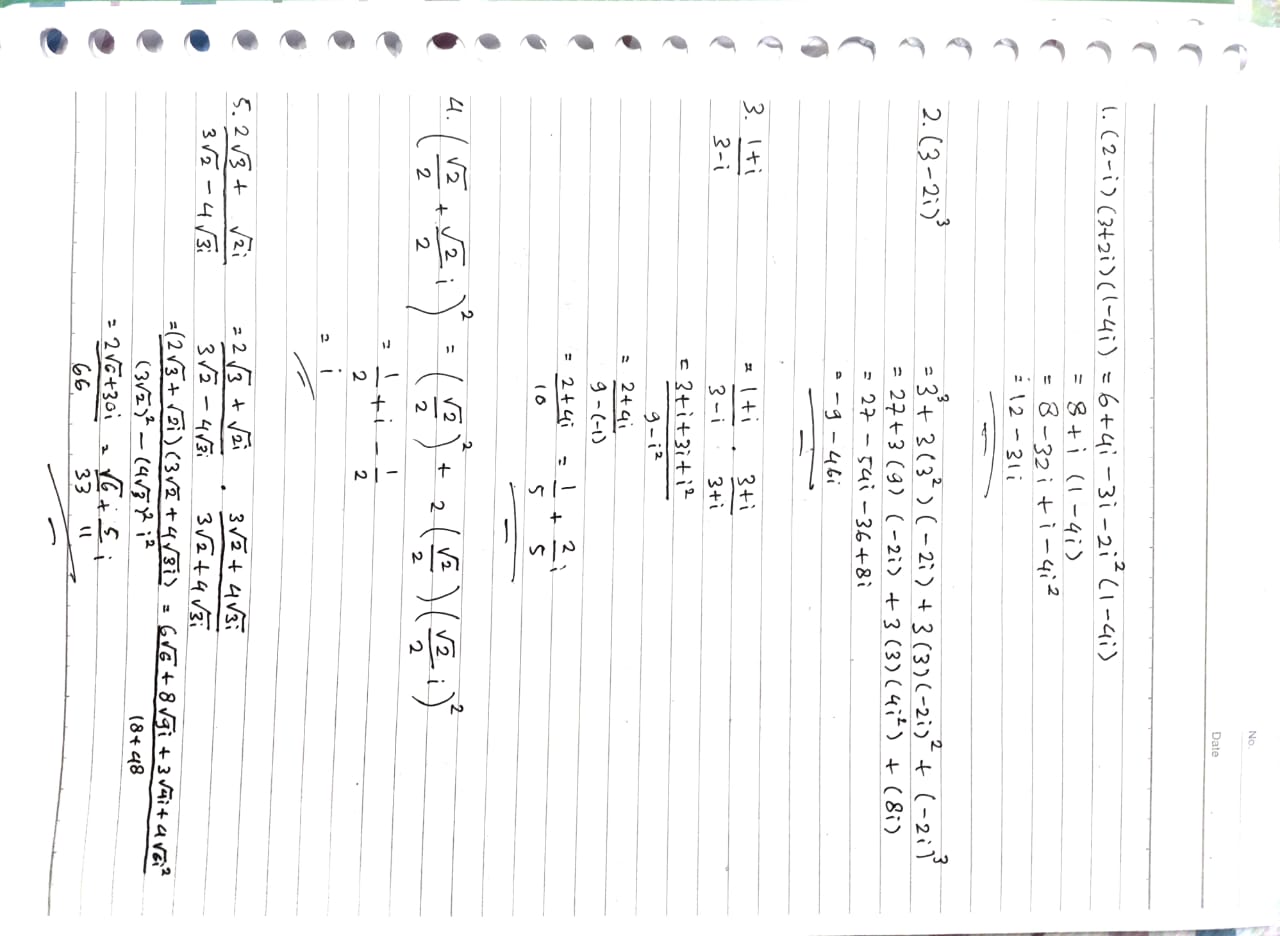 No.
Date
1. (2-i)(3+2i)(1-4i) = 6+4i-3i-2i²(1-4i)
= 8+i (1-4i)
= 8-32i+i-4i²
= 12-31i
2. (3-2i)³ = 3³+3(3²)(-2i)+3(3)(-2i)²+(-2i)³
= 27+3(9)(-2i)+3(3)(4i²)+(8i)
= 27-54i-36+8i
= -9-46i
3. (1+i)/(3-i) = (1+i)/(3-i) . (3+i)/(3+i)
= (3+i+3i+i²)/(9-i²)
= (2+4i)/(9-(-1))
= (2+4i)/10 = 1/5 + 2/5 i
4. (√2/2 + √2/2 i)² = (√2/2)² + 2(√2/2)(√2/2 i)²
= 1/2 + i - 1/2
= i
5. (2√3 + √2i)/(3√2 - 4√3i) = (2√3 + √2i)/(3√2 - 4√3i) . (3√2 + 4√3i)/(3√2 + 4√3i)
= (2√3+√2i)(3√2+4√3i)/((3√2)² - (4√3)² i²) = (6√6+8√9i+3√4i+4√6i²)/(18+48)
= (2√6+30i)/66 = √6/33 + 5/11 i